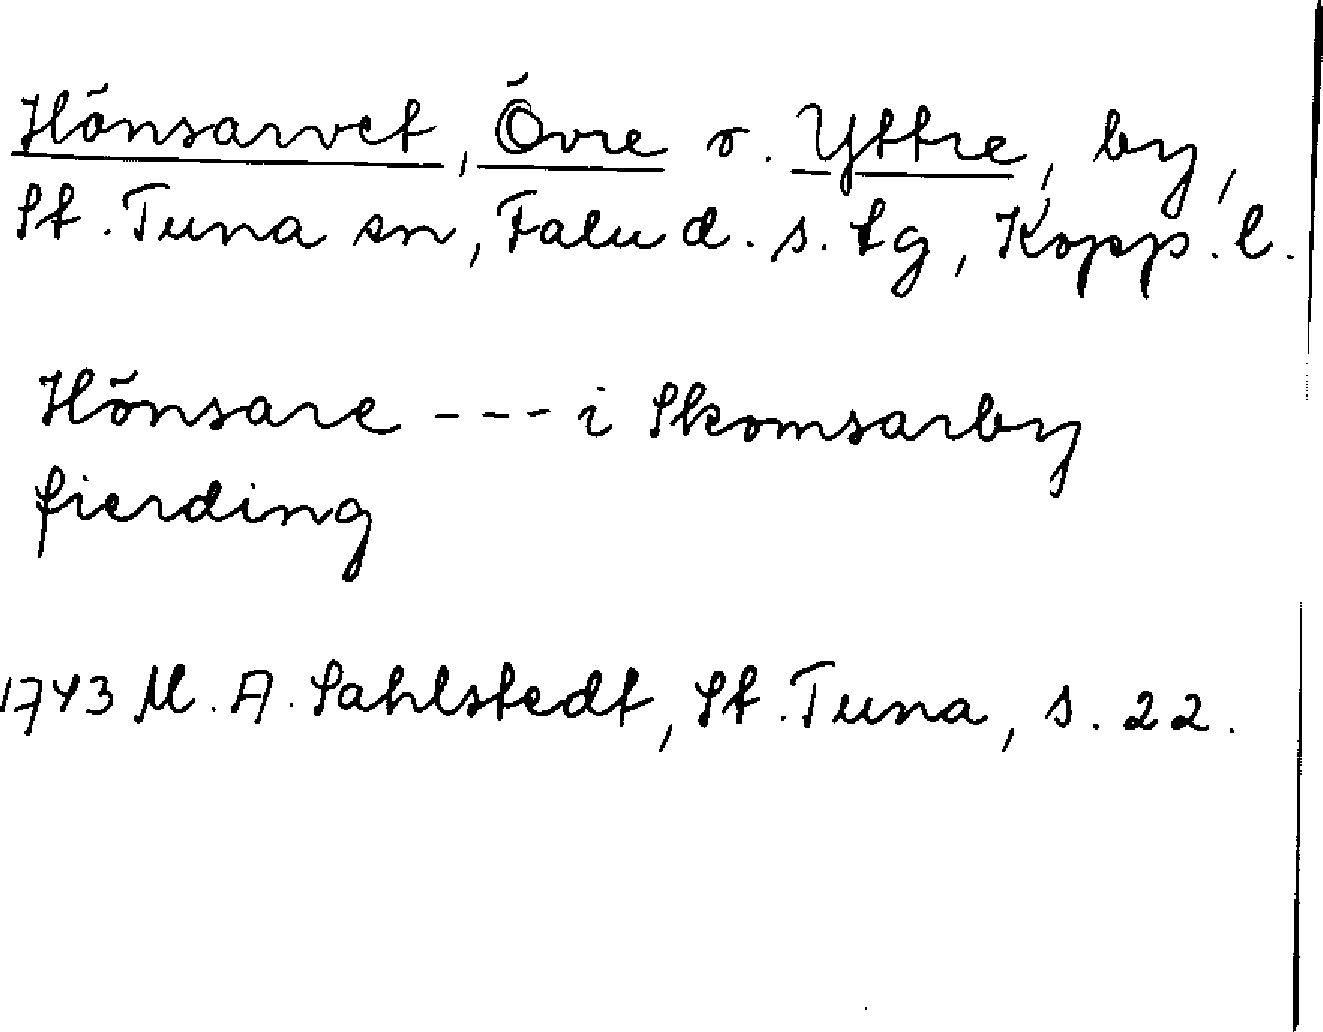 Hönsarvet, Övre o. Yttre, by,
St. Tuna sn, Falu d. s. tg, Kopp. l.
Hönsare --- i Skomsarby
fierding
1743 M. A. Sahlstedt, St. Tuna, s. 22.